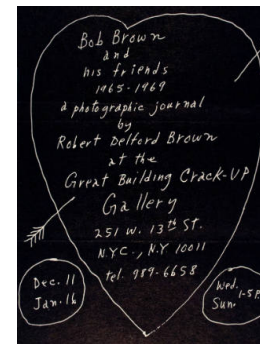 Bob Brown
and
his friends
1965-1969
a photographic journal
by
Robert Delford Brown
at the
Great Building Crack-Up
Gallery
251 W. 13th St.
N.Y.C., N.Y 10011
tel. 989-6658
Dec. 11
Jan. 16
Wed.
1-5 P.
Sun.